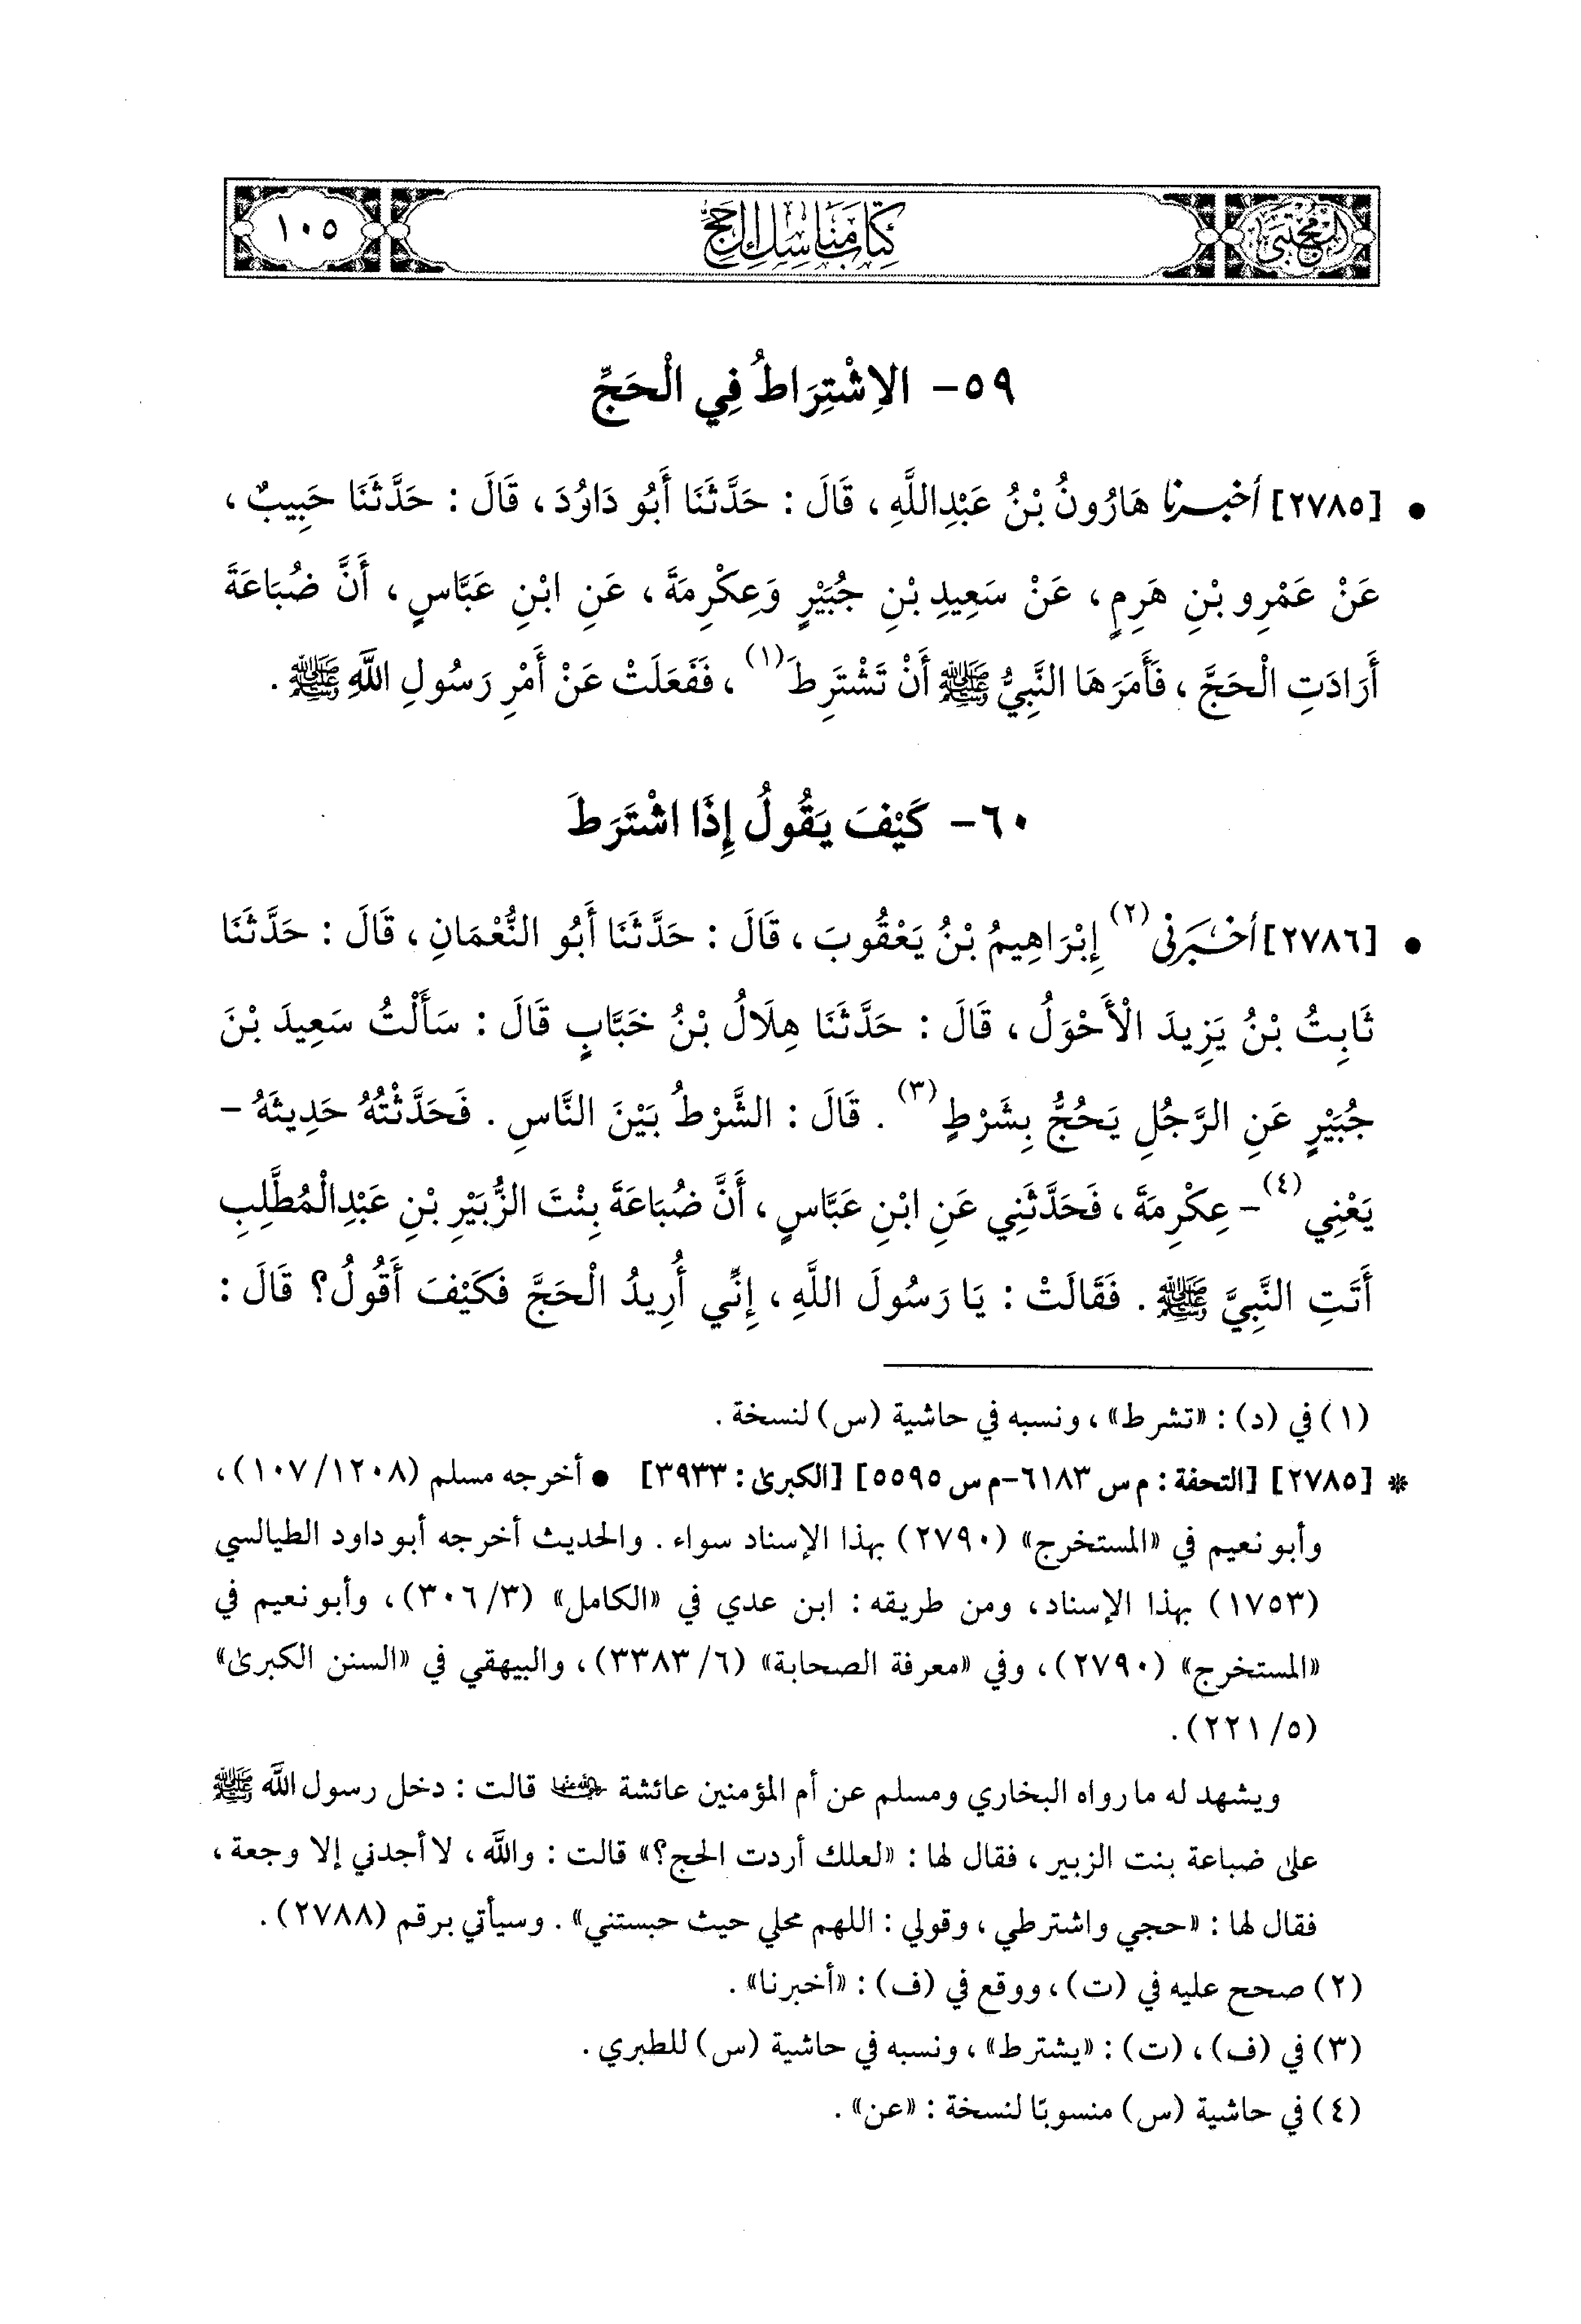 المجتبى
كتاب مناسك الحج
١٠٥
٥٩- الِاشْتِرَاطُ فِي الْحَجِّ
• [٢٧٨٥] أخبرنا هَارُونُ بْنُ عَبْدِاللَّهِ، قَالَ: حَدَّثَنَا أَبُو دَاوُدَ، قَالَ: حَدَّثَنَا حَبِيبٌ،
عَنْ عَمْرِو بْنِ هَرِمٍ، عَنْ سَعِيدِ بْنِ جُبَيْرٍ وَعِكْرِمَةَ، عَنِ ابْنِ عَبَّاسٍ، أَنَّ ضُبَاعَةَ
أَرَادَتِ الْحَجَّ، فَأَمَرَهَا النَّبِيُّ ﷺ أَنْ تَشْتَرِطَ(١)، فَفَعَلَتْ عَنْ أَمْرِ رَسُولِ اللَّهِ ﷺ.
٦٠- كَيْفَ يَقُولُ إِذَا اشْتَرَطَ
• [٢٧٨٦] أَخْبَرَنِي(٢) إِبْرَاهِيمُ بْنُ يَعْقُوبَ، قَالَ: حَدَّثَنَا أَبُو النُّعْمَانِ، قَالَ: حَدَّثَنَا
ثَابِتُ بْنُ يَزِيدَ الْأَحْوَلُ، قَالَ: حَدَّثَنَا هِلَالُ بْنُ خَبَّابٍ قَالَ: سَأَلْتُ سَعِيدَ بْنَ
جُبَيْرٍ عَنِ الرَّجُلِ يَحُجُّ بِشَرْطٍ(٣). قَالَ: الشَّرْطُ بَيْنَ النَّاسِ. فَحَدَّثْتُهُ حَدِيثَهُ -
يَعْنِي(٤) - عِكْرِمَةَ، فَحَدَّثَنِي عَنِ ابْنِ عَبَّاسٍ، أَنَّ ضُبَاعَةَ بِنْتَ الزُّبَيْرِ بْنِ عَبْدِالْمُطَّلِبِ
أَتَتِ النَّبِيَّ ﷺ. فَقَالَتْ: يَا رَسُولَ اللَّهِ، إِنِّي أُرِيدُ الْحَجَّ فَكَيْفَ أَقُولُ؟ قَالَ:
(١) في (د): «تشرط»، ونسبه في حاشية (س) لنسخة.
* [٢٧٨٥] [التحفة: م س ٦١٨٣-م س ٥٥٩٥] [الكبرى: ٣٩٣٣] • أخرجه مسلم (١٠٧/١٢٠٨)،
وأبو نعيم في «المستخرج» (٢٧٩٠) بهذا الإسناد سواء. والحديث أخرجه أبو داود الطيالسي
(١٧٥٣) بهذا الإسناد، ومن طريقه: ابن عدي في «الكامل» (٣٠٦/٣)، وأبو نعيم في
«المستخرج» (٢٧٩٠)، وفي «معرفة الصحابة» (٣٣٨٣/٦)، والبيهقي في «السنن الكبرى»
(٢٢١/٥).
ويشهد له ما رواه البخاري ومسلم عن أم المؤمنين عائشة رضي الله عنها قالت: دخل رسول اللَّه ﷺ
على ضباعة بنت الزبير، فقال لها: «لعلك أردت الحج؟» قالت: واللَّه، لا أجدني إلا وجعة،
فقال لها: «حجي واشترطي، وقولي: اللهم محلي حيث حبستني». وسيأتي برقم (٢٧٨٨).
(٢) صحح عليه في (ت)، ووقع في (ف): «أخبرنا».
(٣) في (ف)، (ت): «يشترط»، ونسبه في حاشية (س) للطبري.
(٤) في حاشية (س) منسوبًا لنسخة: «عن».